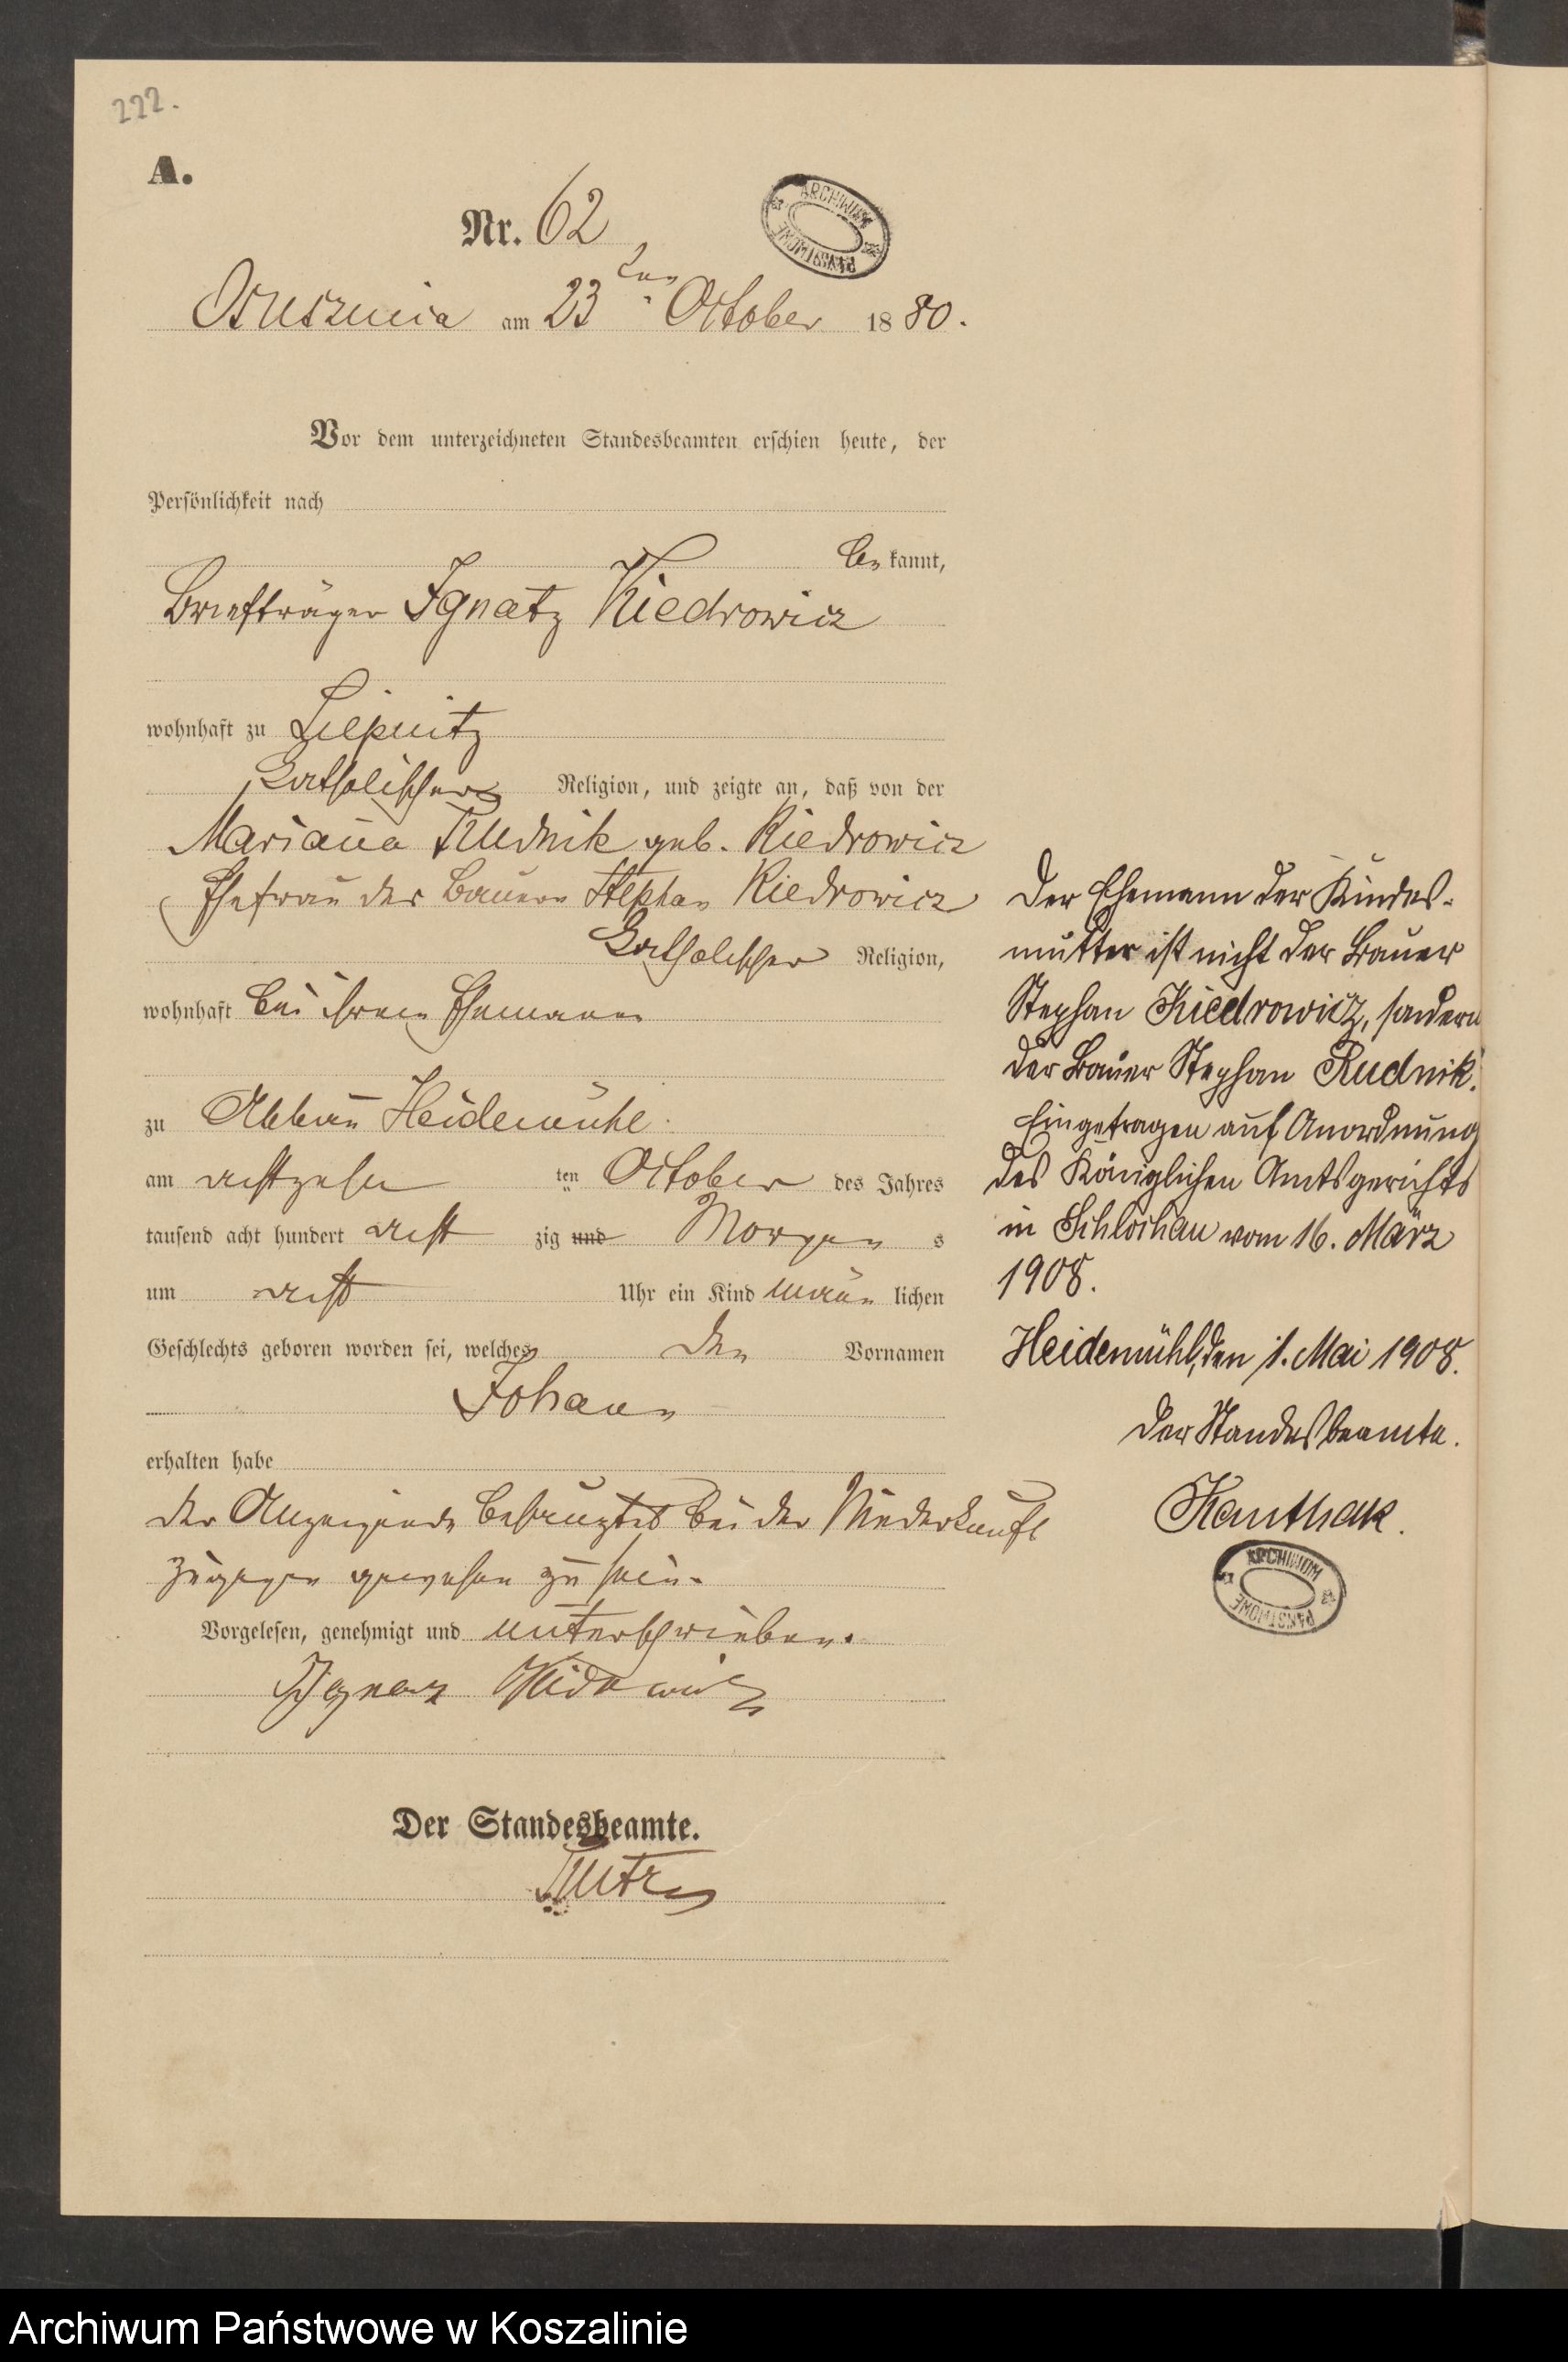 222.
A.
Nr. 62
ARCHIWUM PAŃSTWOWE
Osusznica am 23ten October 1880.
Vor dem unterzeichneten Standesbeamten erschien heute, der
Persönlichkeit nach
bekannt,
Briefträger Ignatz Kiedrowicz
wohnhaft zu Liepnitz
katholischer Religion, und zeigte an, daß von der
Mariana Rudnik geb. Kiedrowicz
Ehefrau des Bauern Stephan Kiedrowicz
katholischer Religion,
wohnhaft bei ihrem Ehemann
zu Abbau Heidemühl
am achtzehn ten October des Jahres
tausend acht hundert acht zig und Morgen s
um acht Uhr ein Kind männ lichen
Geschlechts geboren worden sei, welches den Vornamen
Johann
erhalten habe
der Anzeigende bekrugte bei der Niederkunft
zugegen gewesen zu sein.
Vorgelesen, genehmigt und unterschrieben.
Ignaz
Der Standesbeamte.
Der Ehemann der Kindes-
mutter ist nicht der Bauer
Stephan Kiedrowicz, sondern
der Bauer Stephan Rudnik.
Eingetragen auf Anordnung
des Königlichen Amtsgerichts
in Schlochau vom 16. März
1908.
Heidemühl, den 1. Mai 1908.
Der Standesbeamte.
Kanthak.
ARCHIWUM PAŃSTWOWE
Archiwum Państwowe w Koszalinie